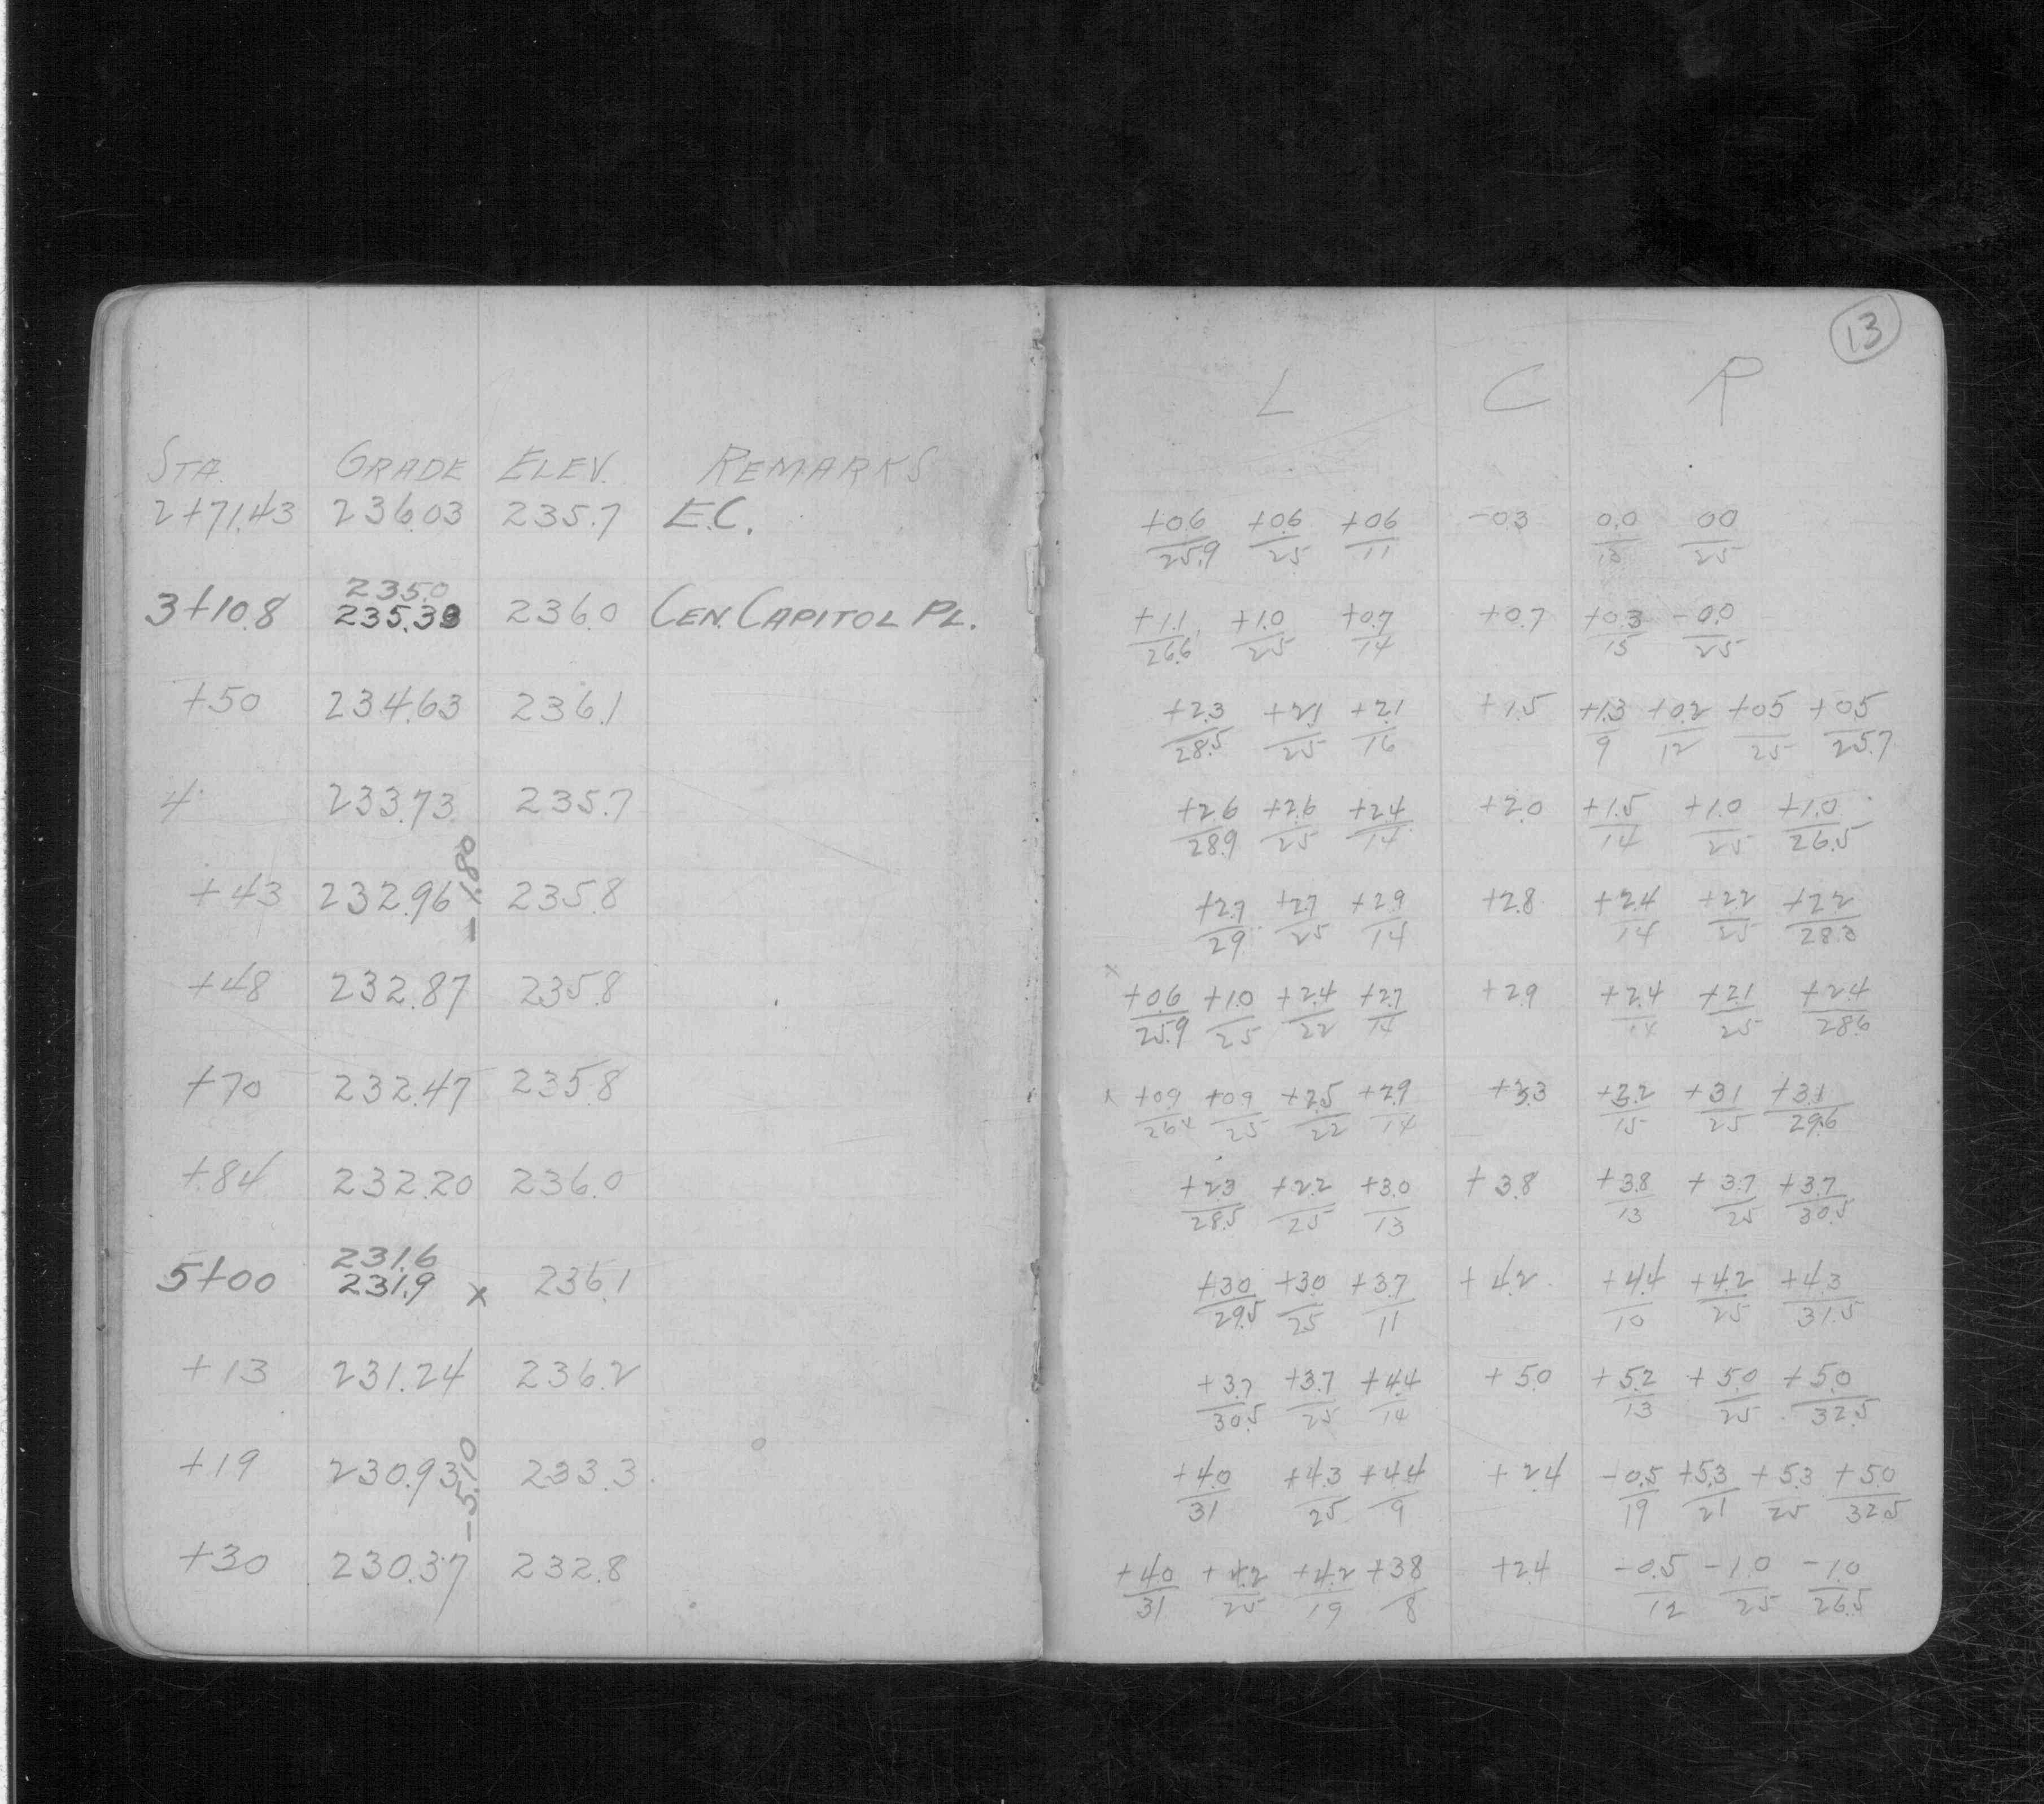 13
L C R
STA. GRADE ELEV. REMARKS
2+71.43 236.03 235.7 E.C.
+0.6/25.9 +0.6/25 +0.6/11 -0.3 0.0/13 0.0/25
235.0
3+10.8 235.38 236.0 CEN. CAPITOL PL.
+1.1/26.6 +1.0/25 +0.7/14 +0.7 +0.3/15 -0.0/25
+50 234.63 236.1
+2.3/28.5 +2.1/25 +2.1/16 +1.5 +1.3/9 +0.2/12 +0.5/25 +0.5/25.7
4 233.73 235.7
+2.6/28.9 +2.6/25 +2.4/14 +2.0 +1.5/14 +1.0/25 +1.0/26.5
-1.80
+43 232.96 235.8
+2.7/29 +2.7/25 +2.9/14 +2.8 +2.4/14 +2.2/25 +2.2/28.3
+48 232.87 235.8
x +0.6/25.9 +1.0/25 +2.4/22 +2.7/14 +2.9 +2.4/14 +2.1/25 +2.4/28.6
+70 232.47 235.8
x +0.9/26.4 +0.9/25 +2.5/22 +2.9/14 +3.3 +3.2/15 +3.1/25 +3.1/29.6
+84 232.20 236.0
+2.3/28.5 +2.2/25 +3.0/13 +3.8 +3.8/13 +3.7/25 +3.7/30.5
231.6
5+00 231.9 x 236.1
+3.0/29.5 +3.0/25 +3.7/11 +4.2 +4.4/10 +4.2/25 +4.3/31.5
+13 231.24 236.2
+3.7/30.5 +3.7/25 +4.4/14 +5.0 +5.2/13 +5.0/25 +5.0/32.5
-5.10
+19 230.93 233.3
+4.0/31 +4.3/25 +4.4/9 +2.4 -0.5/19 +5.3/21 +5.3/25 +5.0/32.5
+30 230.37 232.8
+4.0/31 +4.2/25 +4.2/19 +3.8/8 +2.4 -0.5/12 -1.0/25 -1.0/26.5